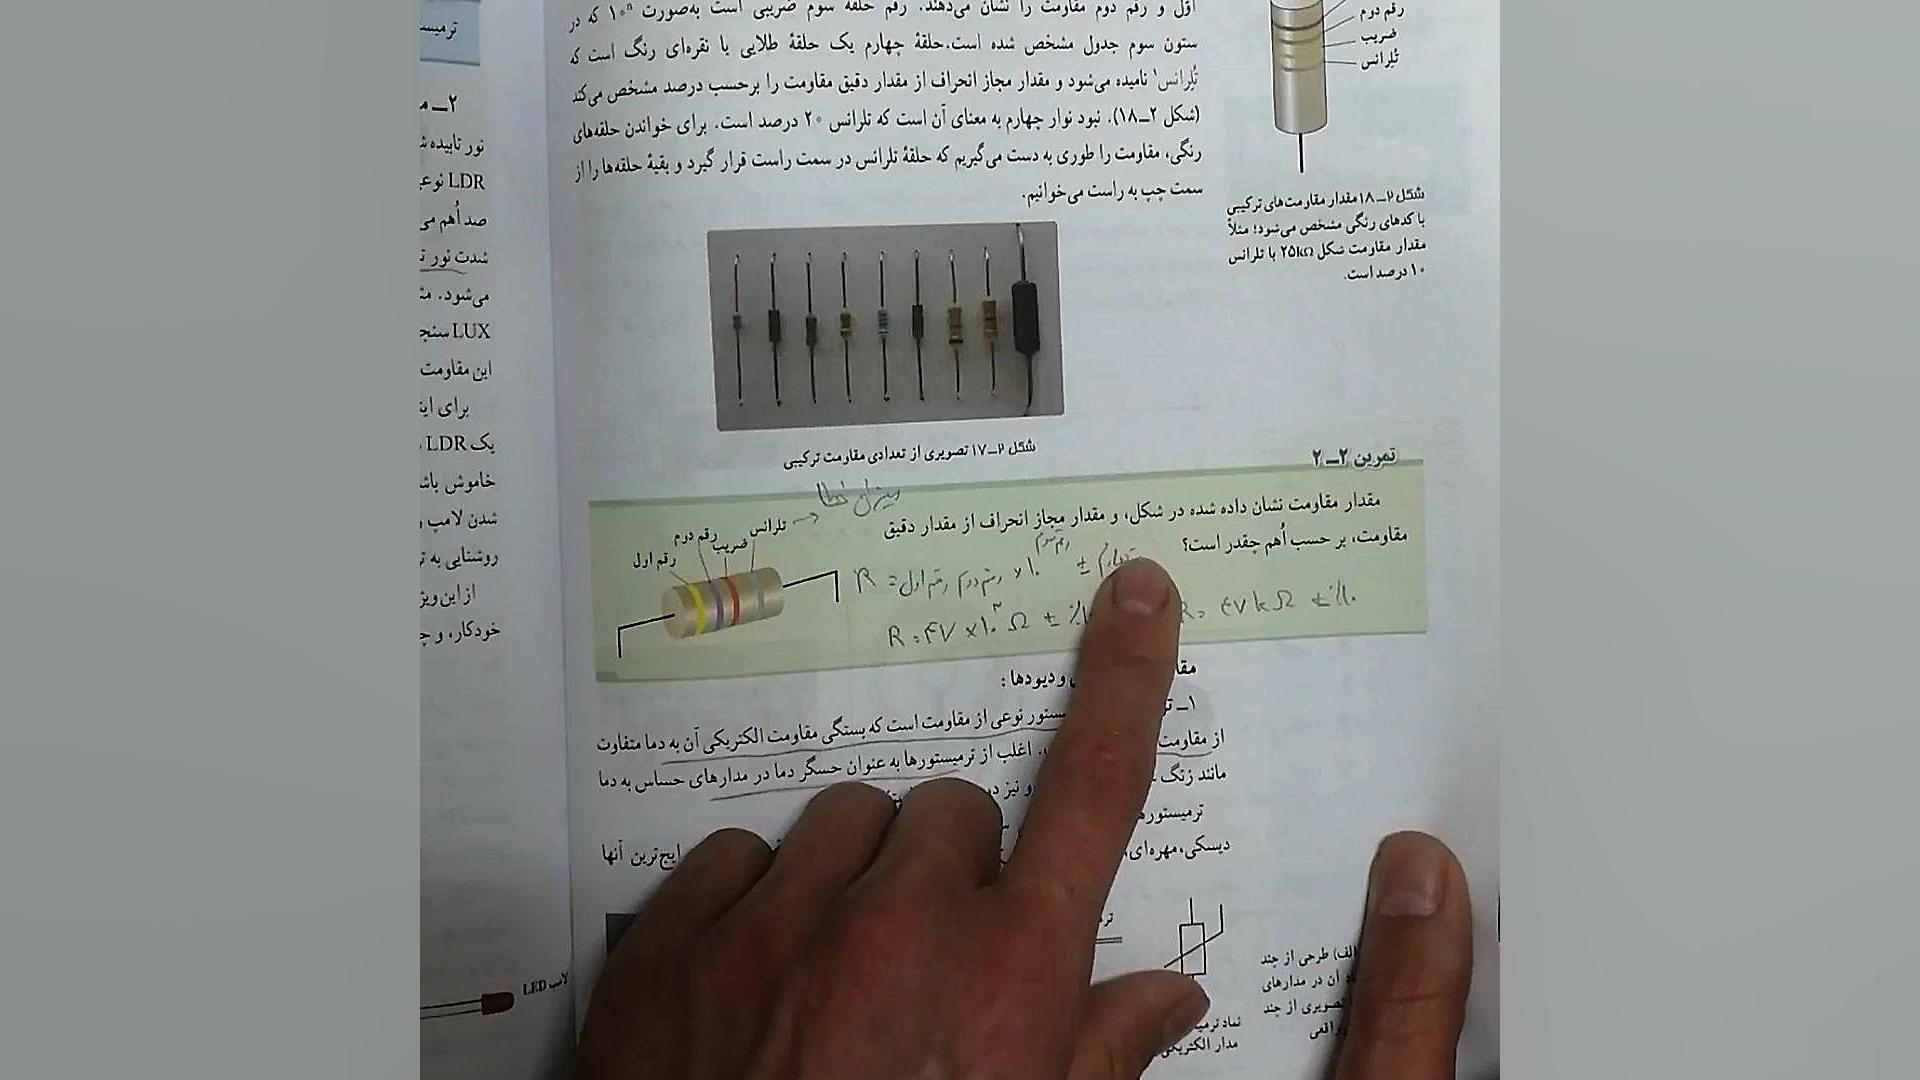 اوّل و رقم دوم مقاومت را نشان می‌دهند. رقم حلقهٔ سوم ضریبی است به‌صورت ۱۰ⁿ که در
ستون سوم جدول مشخص شده است.حلقهٔ چهارم یک حلقهٔ طلایی یا نقره‌ای رنگ است که
تُلِرانس۱ نامیده می‌شود و مقدار مجاز انحراف از مقدار دقیق مقاومت را برحسب درصد مشخص می‌کند
(شکل ۲ــ۱۸). نبود نوار چهارم به معنای آن است که تلرانس ۲۰ درصد است. برای خواندن حلقه‌های
رنگی، مقاومت را طوری به دست می‌گیریم که حلقهٔ تلرانس در سمت راست قرار گیرد و بقیهٔ حلقه‌ها را از
سمت چپ به راست می‌خوانیم.
رقم دوم
ضریب
تُلِرانس
شکل ۲ــ۱۸ مقدار مقاومت‌های ترکیبی
با کدهای رنگی مشخص می‌شود؛ مثلاً
مقدار مقاومت شکل ۲۵kΩ با تلرانس
۱۰ درصد است.
شکل ۲ــ۱۷ تصویری از تعدادی مقاومت ترکیبی
تمرین ۲ــ۲
مقدار مقاومت نشان داده شده در شکل، و مقدار مجاز انحراف از مقدار دقیق
مقاومت، بر حسب اُهم چقدر است؟
میزان خطا
تلرانس →
رقم دوم
ضریب
رقم اول
R = رقم اول رقم دوم × ۱۰ رقم سوم ±
R = ۴۷ × ۱۰³ Ω ± ٪۱
R = ۴۷ kΩ ± ٪۱۰
و دیودها :
۱ــ
نوعی از مقاومت است که بستگی مقاومت الکتریکی آن به دما متفاوت
از مقاومت
اغلب از ترمیستورها به عنوان حسگر دما در مدارهای حساس به دما
مانند زنگ
و نیز در
ترمیستورها
دیسکی، مهره‌ای،
رایج‌ترین آنها
الف) طرحی از چند
آن در مدارهای
تصویری از چند
واقعی
مدار الکتریکی
ترمیست
۲ــ م
نور تابیده ش
LDR نوعی
صد اُهم می
شدت نور ت
می‌شود. مث
LUX سنج
این مقاومت
برای این
یک LDR
خاموش باش
شدن لامپ و
روشنایی به ت
از این ویژ
خودکار، و چ
لامپ LED